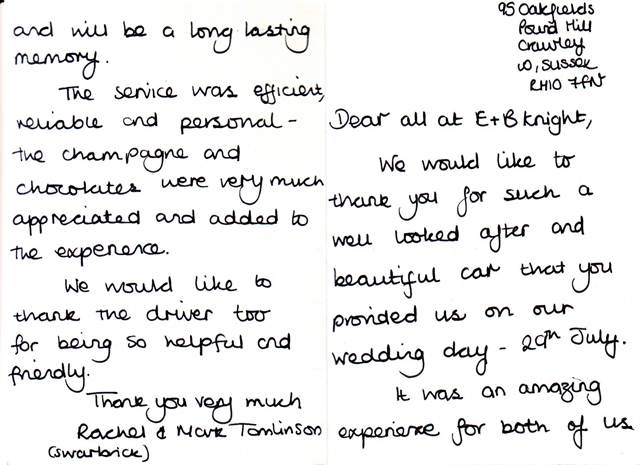 95 Oakfields
Pound Hill
Crawley
W, Sussex
RH10 7FN
Dear all at E+B Knight,
We would like to
thank you for such a
well looked after and
beautiful car that you
provided us on our
wedding day - 29th July.
It was an amazing
experience for both of us
and will be a long lasting
memory.
The service was efficient,
reliable and personal -
the champagne and
chocolates were very much
appreciated and added to
the experience.
We would like to
thank the driver too
for being so helpful and
friendly.
Thank you very much
Rachel & Mark Tomlinson
(Swarbrick)